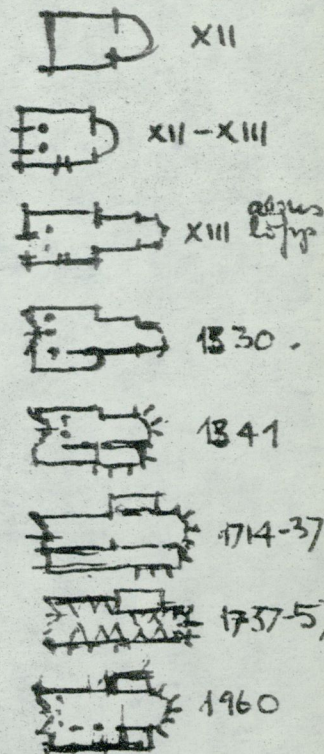 XII
XII-XIII
XIII
1330.
1341
1714-37
1737-57
1960